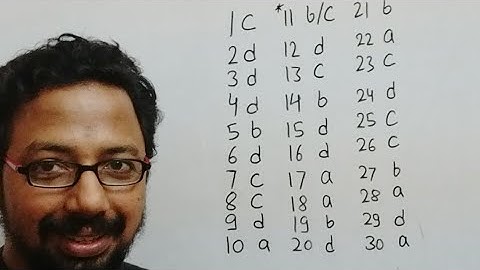 1 C *11 b/C 21 b
2 d 12 d 22 a
3 d 13 C 23 C
4 d 14 b 24 d
5 b 15 d 25 C
6 d 16 d 26 C
7 C 17 a 27 b
8 C 18 a 28 a
9 d 19 b 29 d
10 a 20 d 30 a